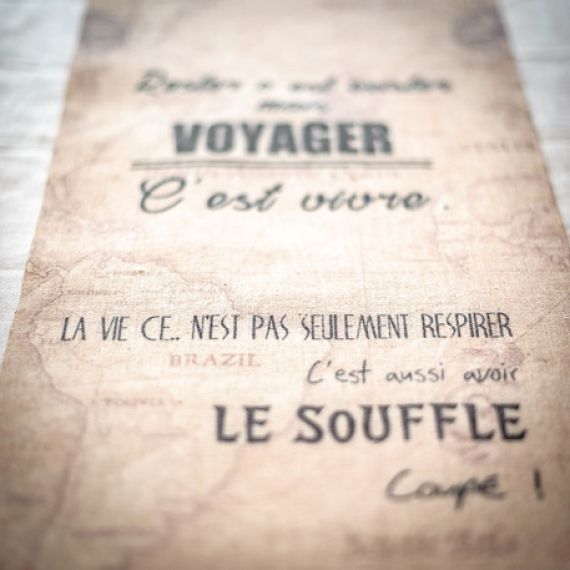 VOYAGER
C'est vivre.
LA VIE CE.. N'EST PAS SEULEMENT RESPIRER
BRAZIL
C'est aussi avoir
BOLIVIA
LE SOUFFLE
Coupé !